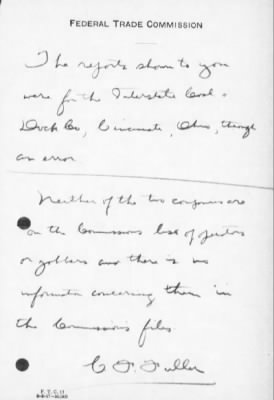 FEDERAL TRADE COMMISSION
The reports shown to you
were for the Interstate Coal &
Dock Co, Cincinnati, Ohio, through
an error
Neither of the two companies are
on the Commissions list of
or jobbers and there is no
information concerning them in
the Commissions files.
C F Fuller
F. T. C. 11